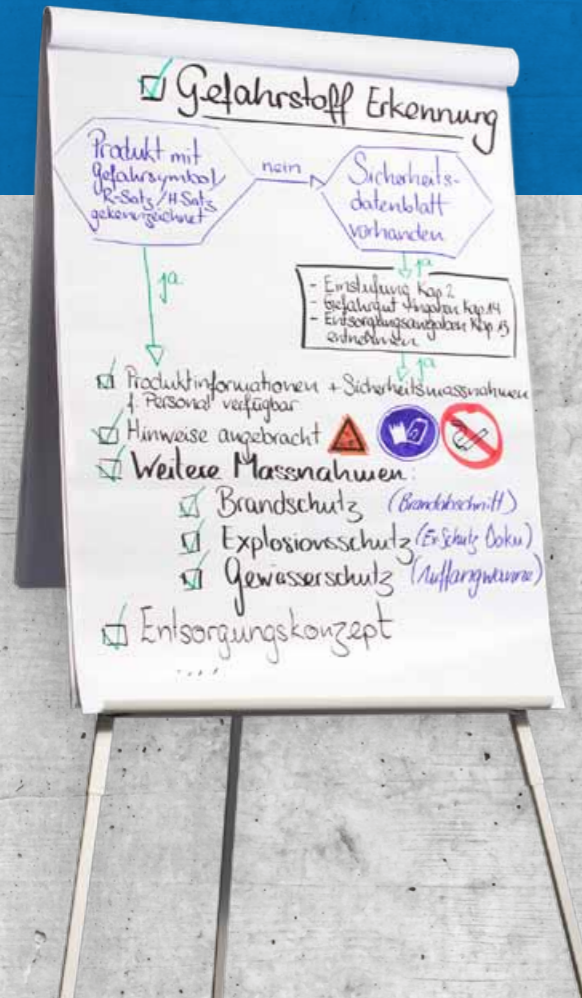 Gefahrstoff Erkennung
Produkt mit
Gefahrsymbol/
R-Satz/H-Satz
gekennzeichnet
nein
Sicherheits-
datenblatt
vorhanden
ja
ja
- Einstufung Kap. 2
- Gefahrgut Angaben Kap. 14
- Entsorgungsangaben Kap. 13
entnehmen
ja
Produktinformationen + Sicherheitsmassnahmen
f. Personal verfügbar
Hinweise angebracht
Weitere Massnahmen:
Brandschutz (Brandabschnitt)
Explosionsschutz (ExSchutz Doku)
Gewässerschutz (Auffangwanne)
Entsorgungskonzept
....